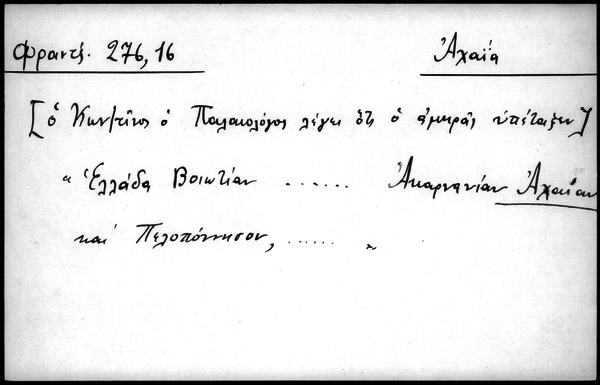 Φραντζ. 276, 16 Ἀχαΐα
[ὁ Κων/τῖνος ὁ Παλαιολόγος λέγει ὅτι ὁ ἀμηρᾶς ὑπέταξεν]
"Ἑλλάδα Βοιωτίαν ...... Ἀκαρνανίαν Ἀχαΐαν
καὶ Πελοπόννησον, ...... "